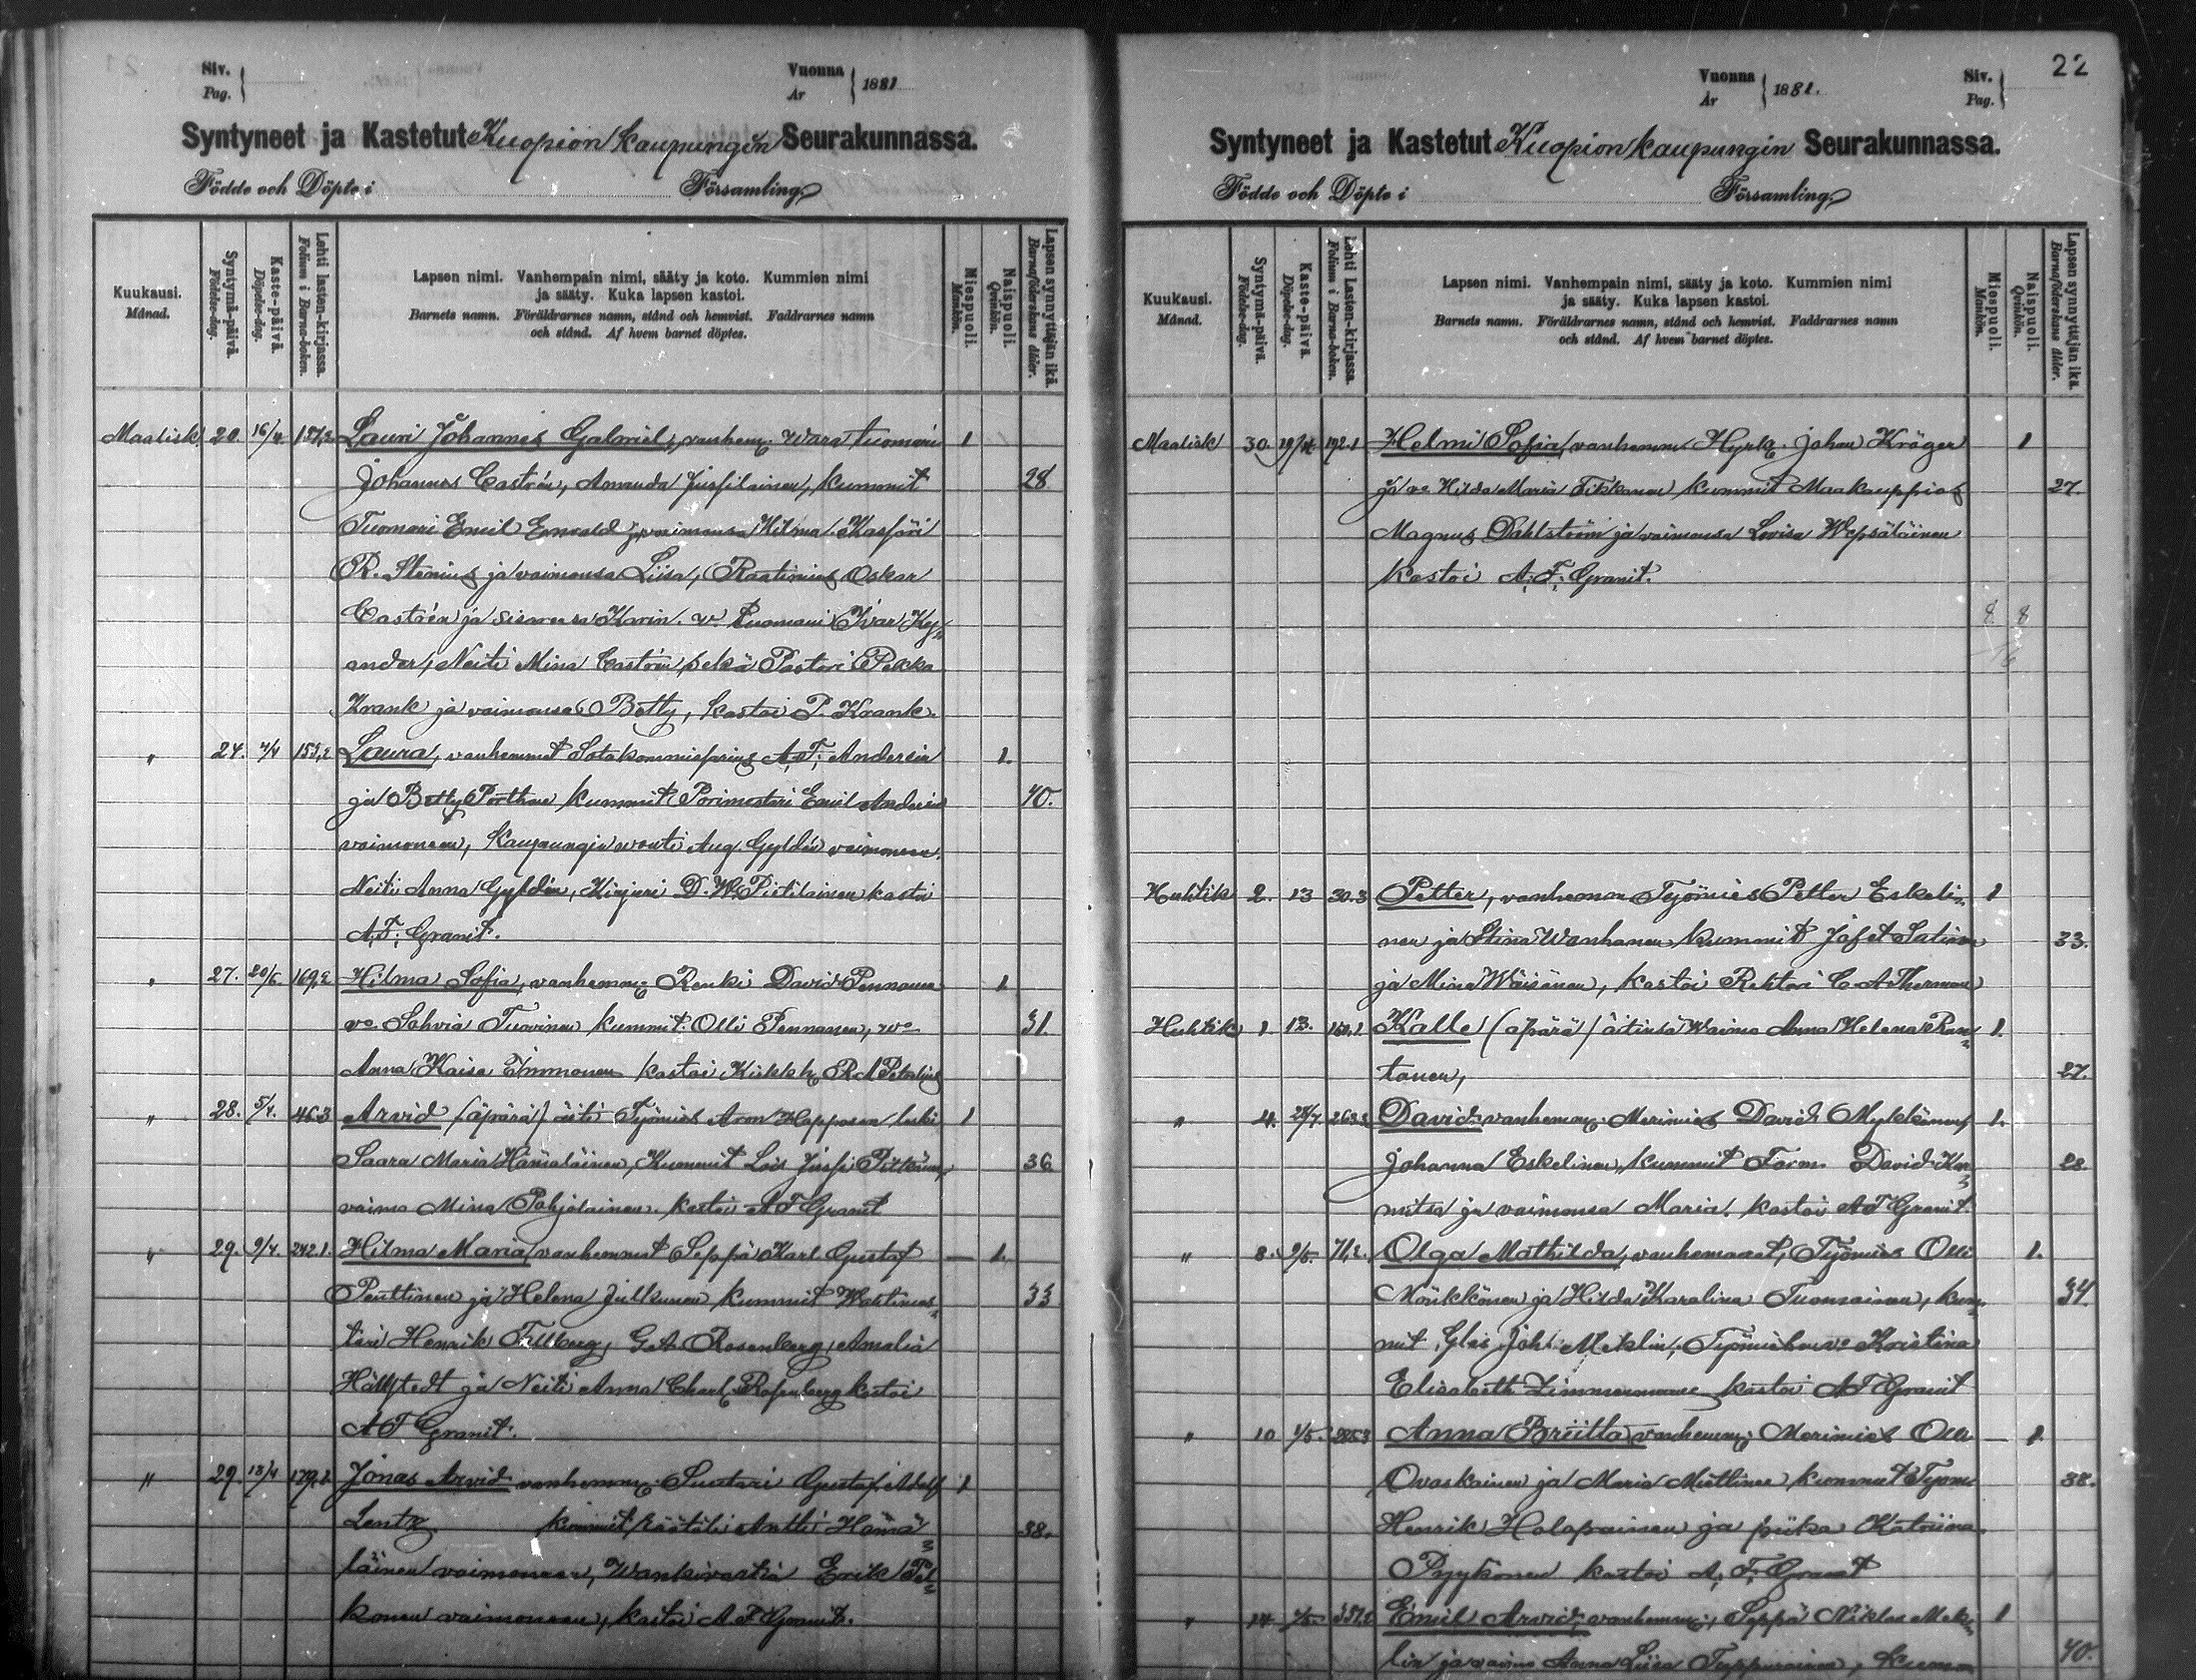 Siv.
Pag.
Vuonna
År
1881
Syntyneet ja Kastetut Kuopion kaupungin Seurakunnassa.
Födde och Döpte i Församling.
Kuukausi.
Månad.
Syntymä-päivä.
Födelse-dag.
Kaste-päivä.
Döpelse-dag.
Lehti lasten-kirjassa.
Folium i Barna-boken.
Lapsen nimi. Vanhempain nimi, sääty ja koto. Kummien nimi
ja sääty. Kuka lapsen kastoi.
Barnets namn. Föräldrarnes namn, stånd och hemvist. Faddrarnes namn
och stånd. Af hvem barnet döptes.
Miespuoli.
Mankön.
Naispuoli.
Qvinkön.
Lapsen synnyttäjän ikä.
Barnaföderskans ålder.
Maalisk. 20. 16/4 157,2 Lauri Johannes Gabriel, vanhem. Wara tuomari 1
Johannes Castrén, Amanda kummit 28
Tuomari Emil Enwald ja vaimonsa Hilma
R. Stenius ja vaimonsa Liisa, Raatimies Oskar
Castrén ja sisarensa Karin. v. Tuomari Ivar Ky-
ander, Neiti Mina Castrén sekä Pastori Pekka
Krank ja vaimonsa Betty, kastoi P. Krank.
" 24. 4/4 155,2 Laura, vanhemmat Sotakommissarius A. F. Andersin 1.
ja Betty Porthan kummit Porimestari Emil Andersin 40.
vaimoneen, Kaupungin vouti Aug. Gyldén vaimoneen.
Neiti Anna Gyldén, Kirjuri D. W. Pistilainen kastoi
A. F. Granit.
" 27. 20/6. 169,2 Hilma Sofia, vanhem. Renki David Pennanen 1
vo. Sohvia Tuovinen kummit. Olli Pennanen, wo 31.
Anna Kaisa Immonen kastoi Kirkkh.
" 28. 5/4. 463 Arvid (äpärä) äiti Työmies Aron Happosen leski 1
Saara Maria Hämäläinen, Kummit Jussi 36
vaimo Mina Pohjolainen. kastoi A F Granit
" 29. 9/4. 242.1. Hilma Maria, vanhemmat Seppä Karl Gustaf 1.
Penttinen ja Helena Julkunen kummit Wahtimes- 33
tari Henrik G. A. Rosenberg, Amalia
Hällstedt ja Neiti Anna Charl. Rosenberg kastoi
A F Granit.
" 29. 13/4 179,2 Jonas Arvid vanhem. Suutari Gustaf Adolf 1
Lentz kummit räätäli Antti Hämä- 38.
läinen vaimoneen, Wankivartia Erik Pel-
konen vaimoneen, kastoi A F Granit.
22
Vuonna
År
1881.
Siv.
Pag.
Syntyneet ja Kastetut Kuopion kaupungin Seurakunnassa.
Födde och Döpte i Församling.
Kuukausi.
Månad.
Syntymä-päivä.
Födelse-dag.
Kaste-päivä.
Döpelse-dag.
Lehti Lasten-kirjassa.
Folium i Barna-boken.
Lapsen nimi. Vanhempain nimi, sääty ja koto. Kummien nimi
ja sääty. Kuka lapsen kastoi.
Barnets namn. Föräldrarnes namn, stånd och hemvist. Faddrarnes namn
och stånd. Af hvem barnet döptes.
Miespuoli.
Mankön.
Naispuoli.
Qvinkön.
Lapsen synnyttäjän ikä.
Barnaföderskans ålder.
Maalisk 30. 19/4 192.1 Helmi Sofia, vanhemmat Johan Kröger 1
ja vo Hilda Maria Tikkanen kummit Maakauppias 27.
Magnus Dahlström ja vaimonsa Lovisa Wepsäläinen
kastoi A. F. Granit.
8. 8
16
Huhtik 2. 13 30.3 Petter, vanhemm Työmies Petter Eskeli- 1
nen ja Stina Wanhanen kummit Jafet 33.
ja Mina Wäisänen, kastoi Rehtori C. A. Therman
Huhtik 1. 13. Kalle (äpärä) äitinsä Waimo Anna Helena Ran- 1.
tanen, 27.
" 4. 28/4. 263.2 David, vanhem. Merimies David Mykkänen 1.
Johanna Eskelinen, kummit Farm. David
vaimonsa Maria. kastoi A F Granit.
" 8. 9/5. 71.2. Olga Mathilda, vanhemmat, Työmies Olli 1.
Mörkkönen ja Hilda Karolina Tuomainen, kum- 34.
mit, Joh. Meklin, Työmiehen vo Kristina
Elisabeth Zimmermann kastoi A F Granit
" 10 1/5. 285.3 Anna Briitta vanhem. Merimies Olli 1.
Ovaskainen ja Maria Miettinen kummit Työm. 38.
Henrik Holopainen ja piika Katriina
Pyykönen kastoi A. F. Granit
" 14. Emil Arvid, vanhem. Seppä Niklas Mek- 1
lin ja vaimo Anna Liisa Tuppurainen, Kumm 40.